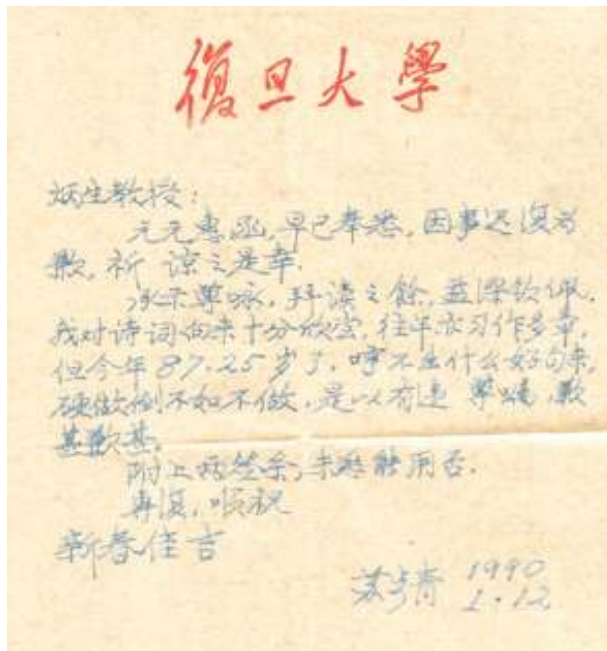 復旦大學
炳生教授:
元元惠函,早已奉悉,因事迟复为
歉,祈 谅之是幸.
承示尊咏,拜读之餘,益深钦佩.
我对诗词向来十分欣赏,往年亦习作多章,
但今年87.25岁了,哼不出什么好句来,
硬做倒不如不做,是以有违 尊嘱,歉
甚歉甚.
附上,未悉能用否.
再复,顺祝
新春佳吉
苏步青 1990
1.12.